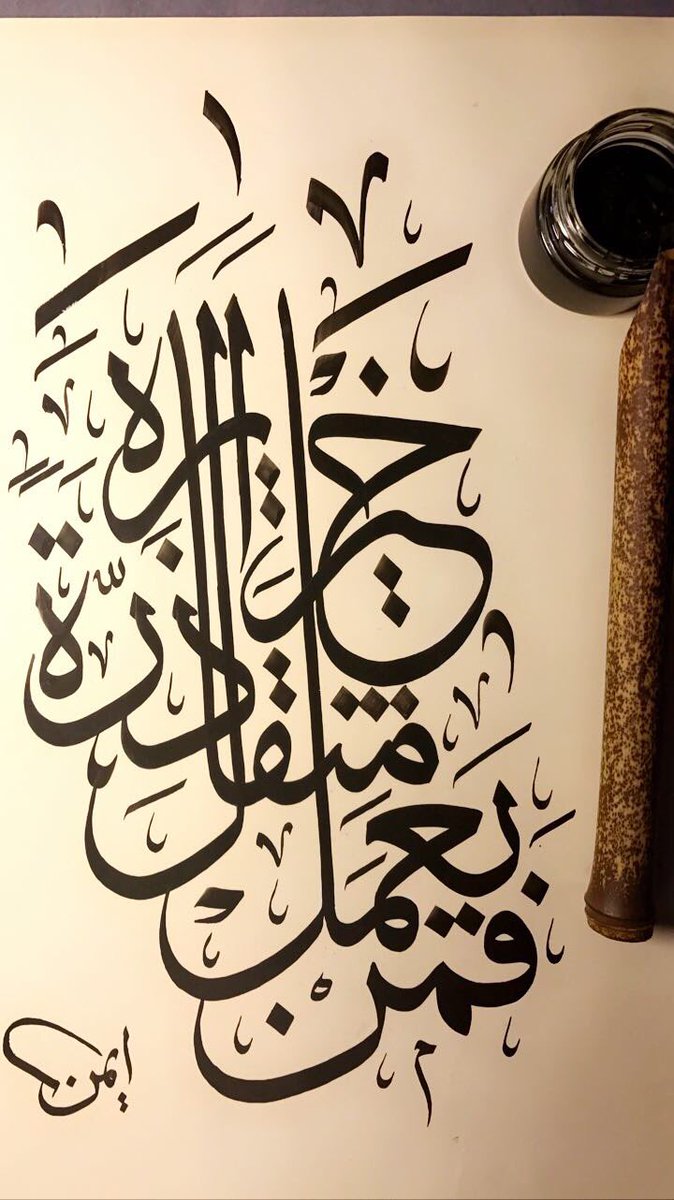 فَمَن يَعْمَلْ مِثْقَالَ ذَرَّةٍ خَيْرًا يَرَهُ
ايمن